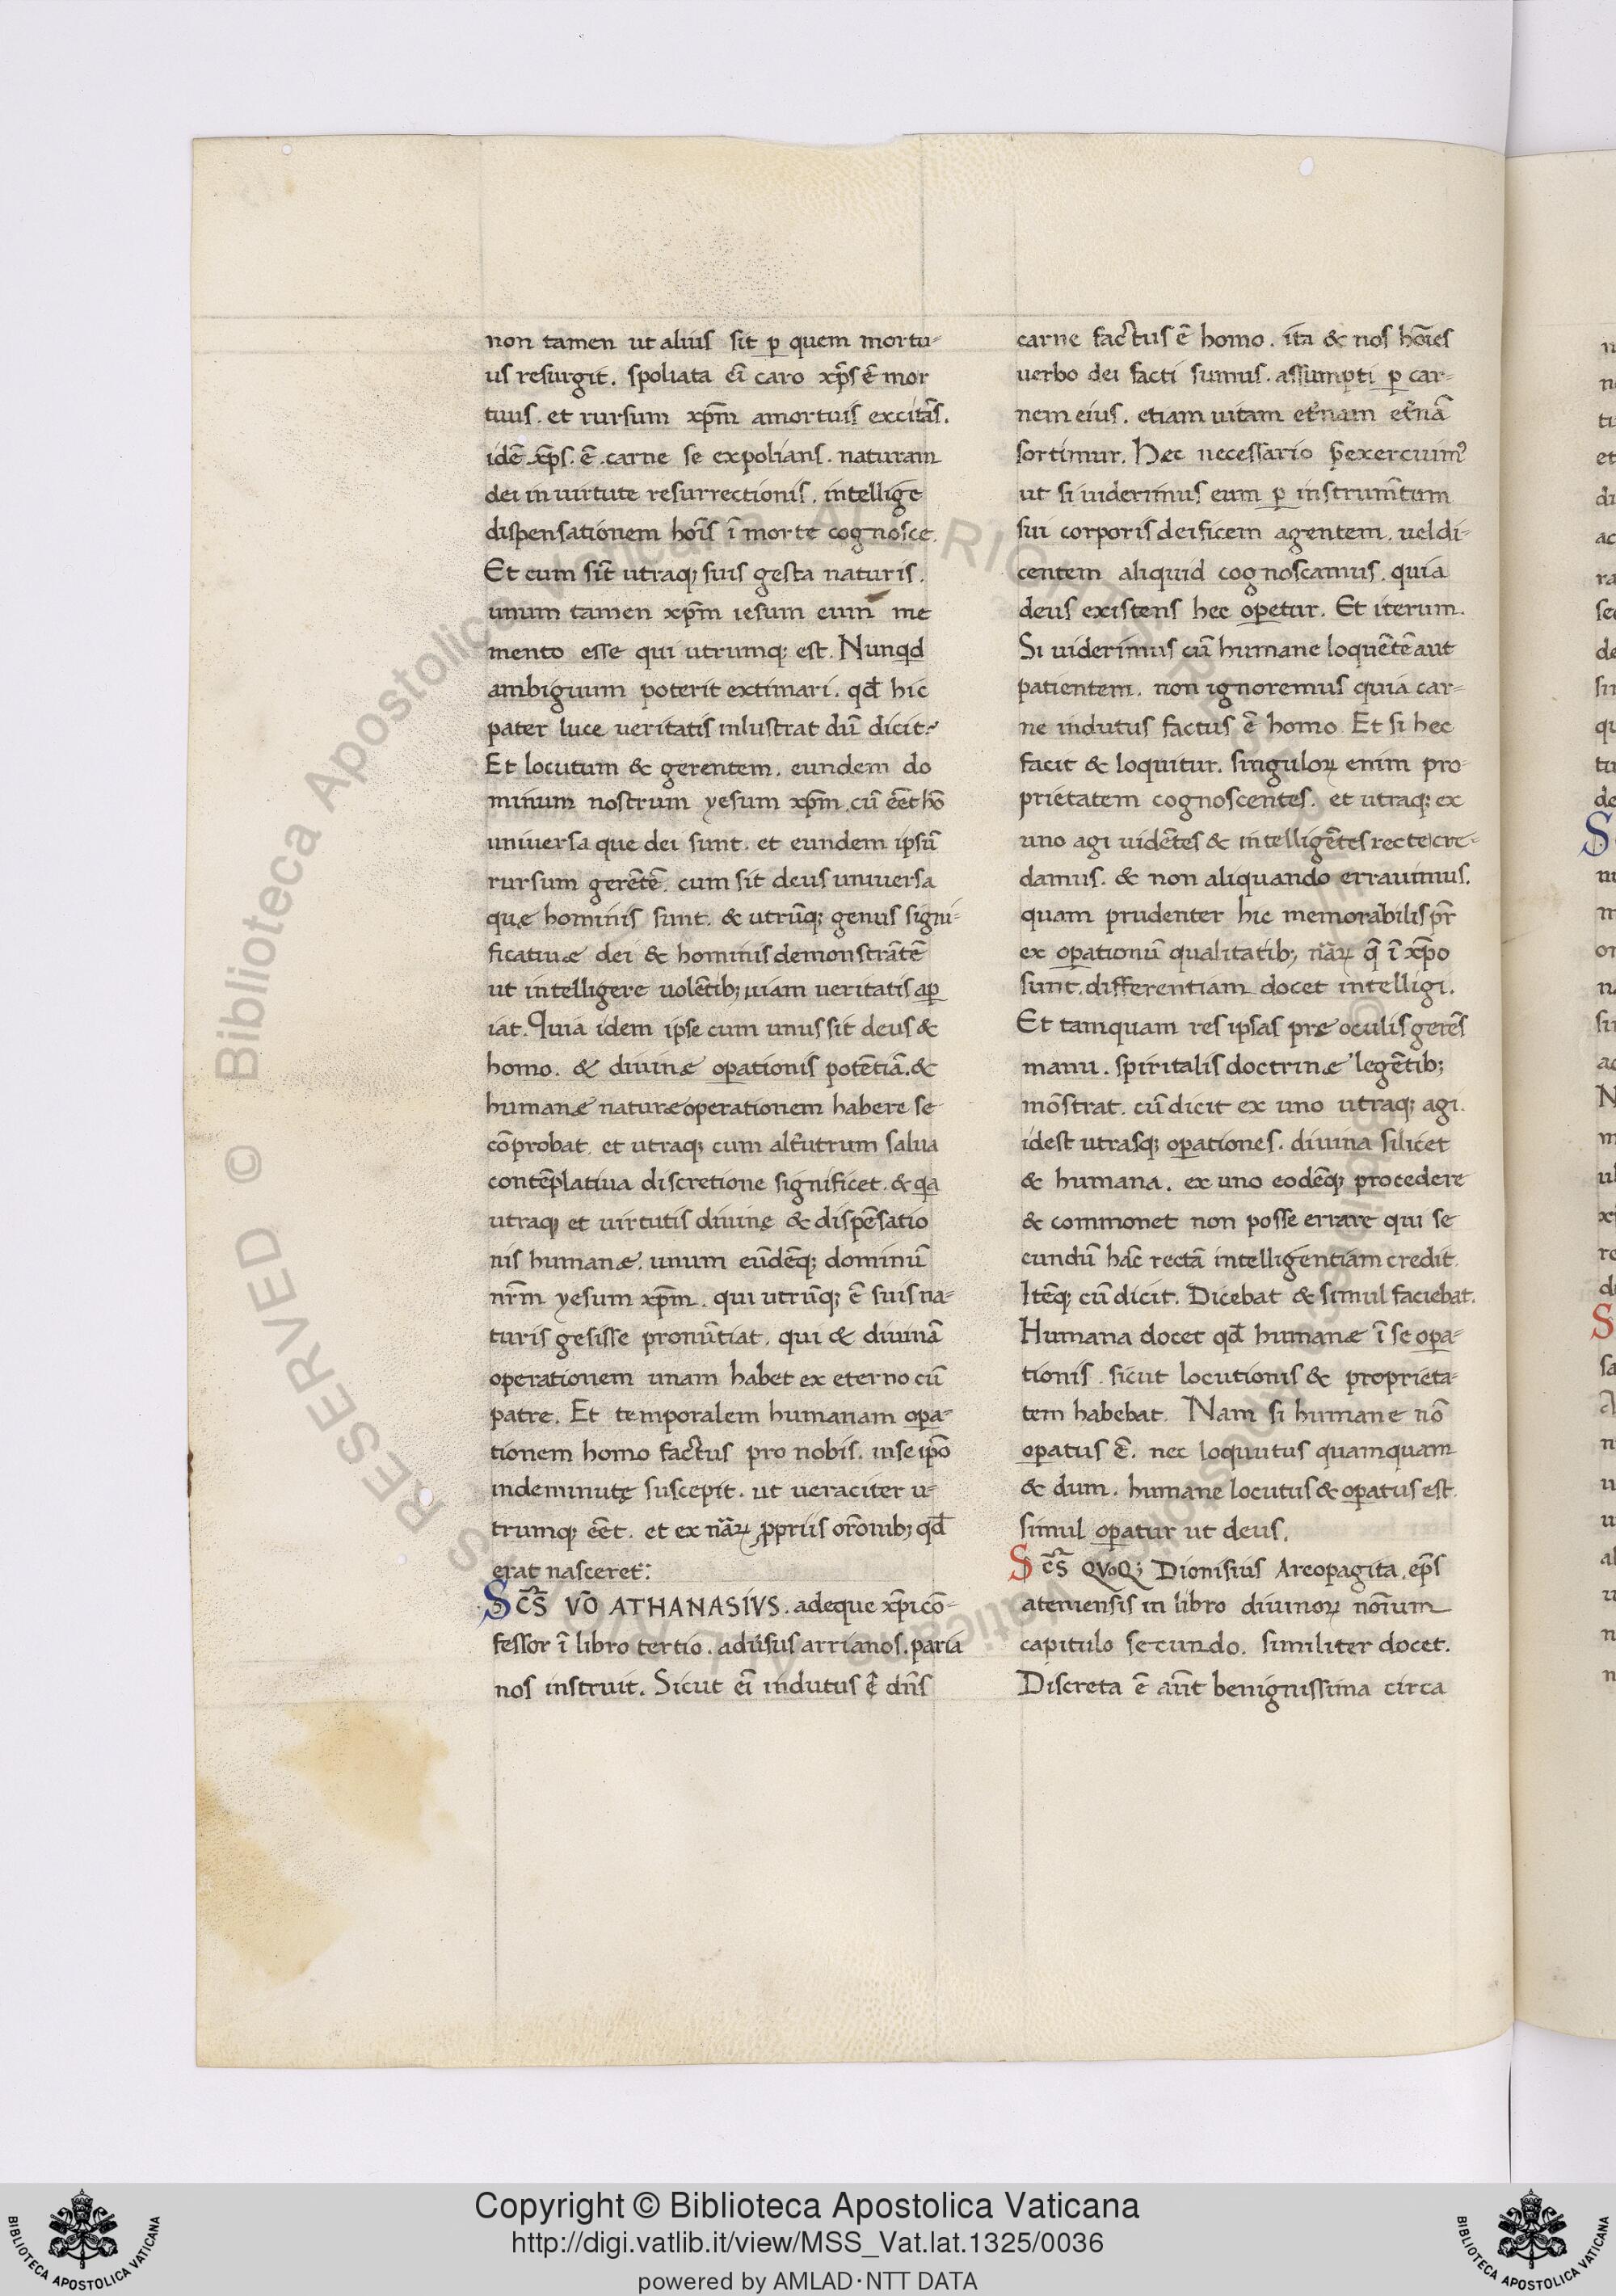 non tamen ut alius sit ꝑ quem mortu-
us resurgit. spoliata ei̅ caro xp̅s e̅ mor
tuus. et rursum xp̅m amortuis excita̅s.
ide̅ xp̅s. e̅. carne se expolians. naturam
dei in uirtute resurrectionis. intellige
dispensationem hoi̅s i̅ morte cognosce.
Et cum si̅t utraq; suis gesta naturis.
unum tamen xp̅m iesum eum me
mento esse qui utrumq; est. Nunqd
ambiguum poterit extimari. qd̅ hic
pater luce ueritatis inlustrat du̅ dicit?
Et locutum & gerentem. eundem do
minum nostrum yesum xp̅m. cu̅ ee̅t ho̅
uniuersa que dei sunt. et eundem ipsu̅
rursum gere̅te̅. cum sit deus uniuersa
quę hominis sunt. & utru̅q; genus signi-
ficatiuæ dei & hominis demonstra̅te̅
ut intelligere uole̅tib; uiam ueritatis aꝑ
iat. Quia idem ipse cum unus sit deus &
homo. & diuinæ oꝑationis pote̅tia̅. &
humanæ naturæ operationem habere se
co̅probat. et utraq; cum alt̅utrum salua
conte̅platiua discretione significet. & qa
utraq; et uirtutis diuinę & dispe̅satio
nis humanæ. unum eu̅de̅q; dominu̅
nr̅m yesum xp̅m. qui utru̅q; e̅ suis na-
turis gesisse pronu̅tiat. qui & diuina̅
operationem unam habet ex eterno cu̅
patre. Et temporalem humanam oꝑa-
tionem homo factus pro nobis. inse ip̅o
indeminutę suscepit. ut ueraciter u-
trumq; ee̅t. et ex na̅ꝝ ꝓpriis oro̅nib; qd̅
erat nasceret̅:
Sc̅s̅ VO̅ ATHANASIVS. adeque xp̅i co̅-
fessor i̅ libro tertio. adu̅sus arrianos. paria
nos instruit. Sicut ei̅ indutus e̅ dn̅s
carne factus e̅ homo. ita & nos ho̅ies
uerbo dei facti sumus. assumpti ꝑ car-
nem eius. etiam uitam et̅nam et̅na̅
sortimur. Hec necessario p̅exercuimꝰ
ut si uiderimus eum ꝑ instrum̅tum
sui corporis deificem agentem. uel di-
centem aliquid cognoscamus. quia
deus existens hec oꝑetur. Et iterum.
Si uiderimus cu̅ humane loque̅te̅ aut
patientem. non ignoremus quia car-
ne indutus factus e̅ homo. Et si hec
facit & loquitur. singuloꝝ enim pro-
prietatem cognoscentes. et utraq; ex
uno agi uide̅tes & intellige̅tes recte cre-
damus. & non aliquando errauimus.
quam prudenter hic memorabilis pr̅
ex oꝑationu̅ qualitatib; na̅ꝝ q̅ i̅ xp̅o
sunt. differentiam docet intelligi.
Et tamquam res ipsas præ oculis gere̅s
manu. spiritalis doctrinæ lege̅tib;
mo̅strat. cu̅ dicit ex uno utraq; agi.
idest utrasq; oꝑationes. diuina silicet
& humana. ex uno eode̅q; procedere
& commonet non posse errare qui se
cundu̅ ha̅c recta̅ intelligentiam credit.
Ite̅q; cu̅ dicit. Dicebat & simul faciebat.
Humana docet qd̅ humanæ i̅ se oꝑa-
tionis. sicut locutionis & proprieta-
tem habebat. Nam si humane no̅
oꝑatus e̅. nec loquutus quamquam
& dum. humane locutus & oꝑatus est.
simul oꝑatur ut deus.
Sc̅s̅ QVOQ; Dionisius Areopagita. ep̅s
ateniensis in libro diuinoꝝ no̅ium
capitulo secundo. similiter docet.
Discreta e̅ au̅t benignissima circa
Copyright © Biblioteca Apostolica Vaticana
http://digi.vatlib.it/view/MSS_Vat.lat.1325/0036
powered by AMLAD·NTT DATA
BIBLIOTECA APOSTOLICA VATICANA
BIBLIOTECA APOSTOLICA VATICANA